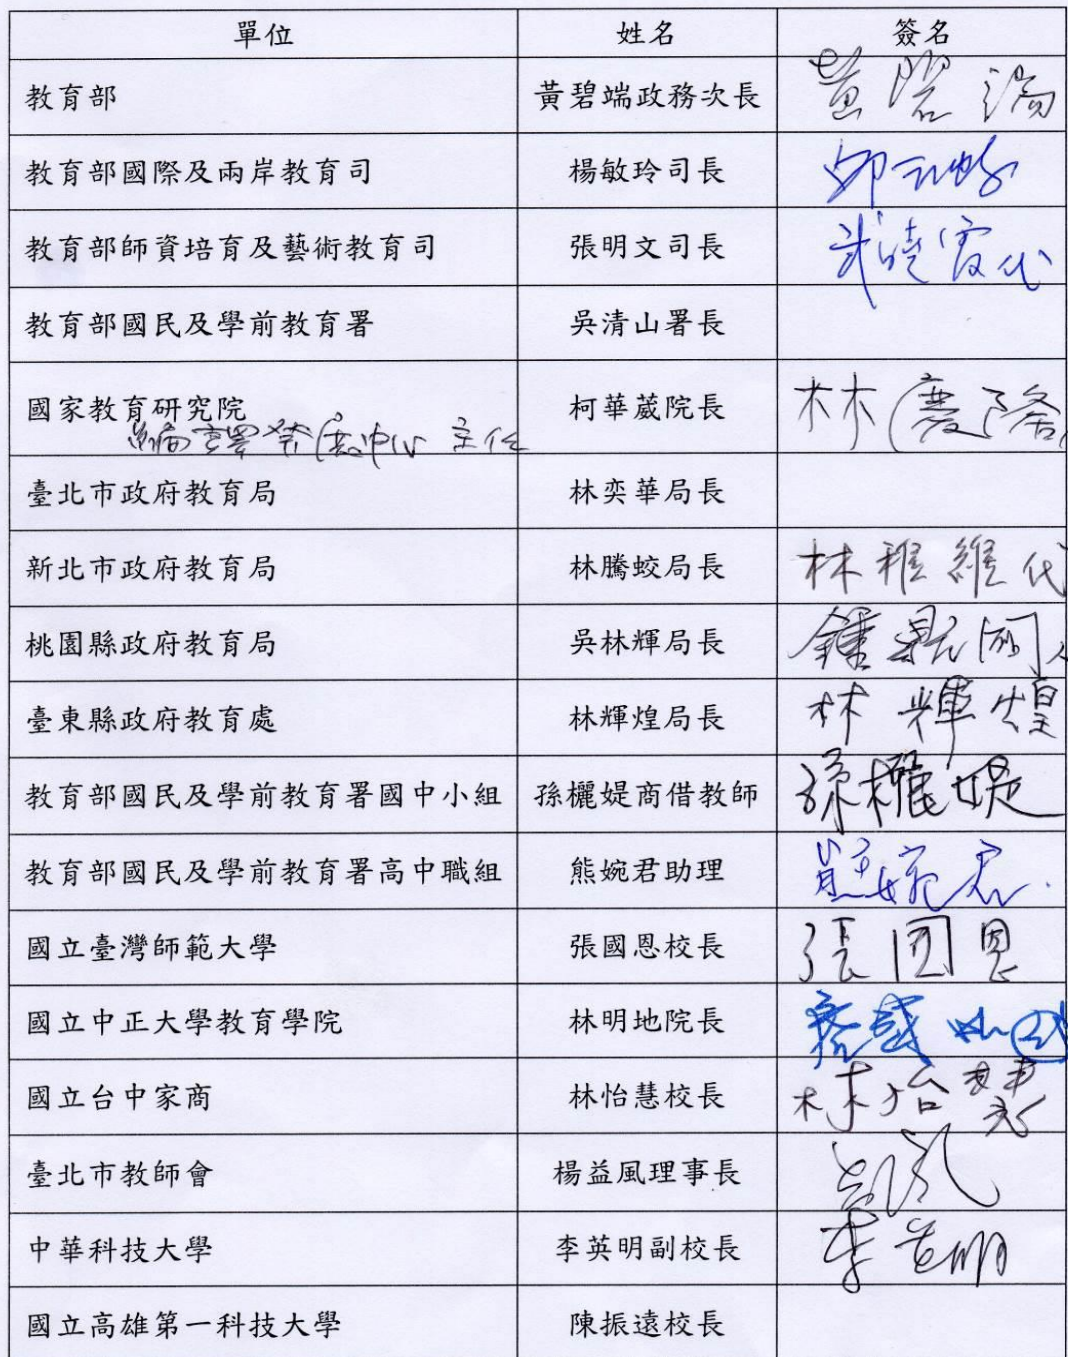 單位 姓名 簽名
教育部 黃碧端政務次長 黃碧端
教育部國際及兩岸教育司 楊敏玲司長
教育部師資培育及藝術教育司 張明文司長 武曉霞代
教育部國民及學前教育署 吳清山署長
國家教育研究院 柯華葳院長 林慶隆
編譯發展中心 主任
臺北市政府教育局 林奕華局長
新北市政府教育局 林騰蛟局長 代
桃園縣政府教育局 吳林輝局長 鍾鼎
臺東縣政府教育處 林輝煌局長 林輝煌
教育部國民及學前教育署國中小組 孫欐媞商借教師 孫欐媞
教育部國民及學前教育署高中職組 熊婉君助理 熊婉君
國立臺灣師範大學 張國恩校長 張國恩
國立中正大學教育學院 林明地院長
國立台中家商 林怡慧校長 林怡慧
臺北市教師會 楊益風理事長
中華科技大學 李英明副校長 李英明
國立高雄第一科技大學 陳振遠校長